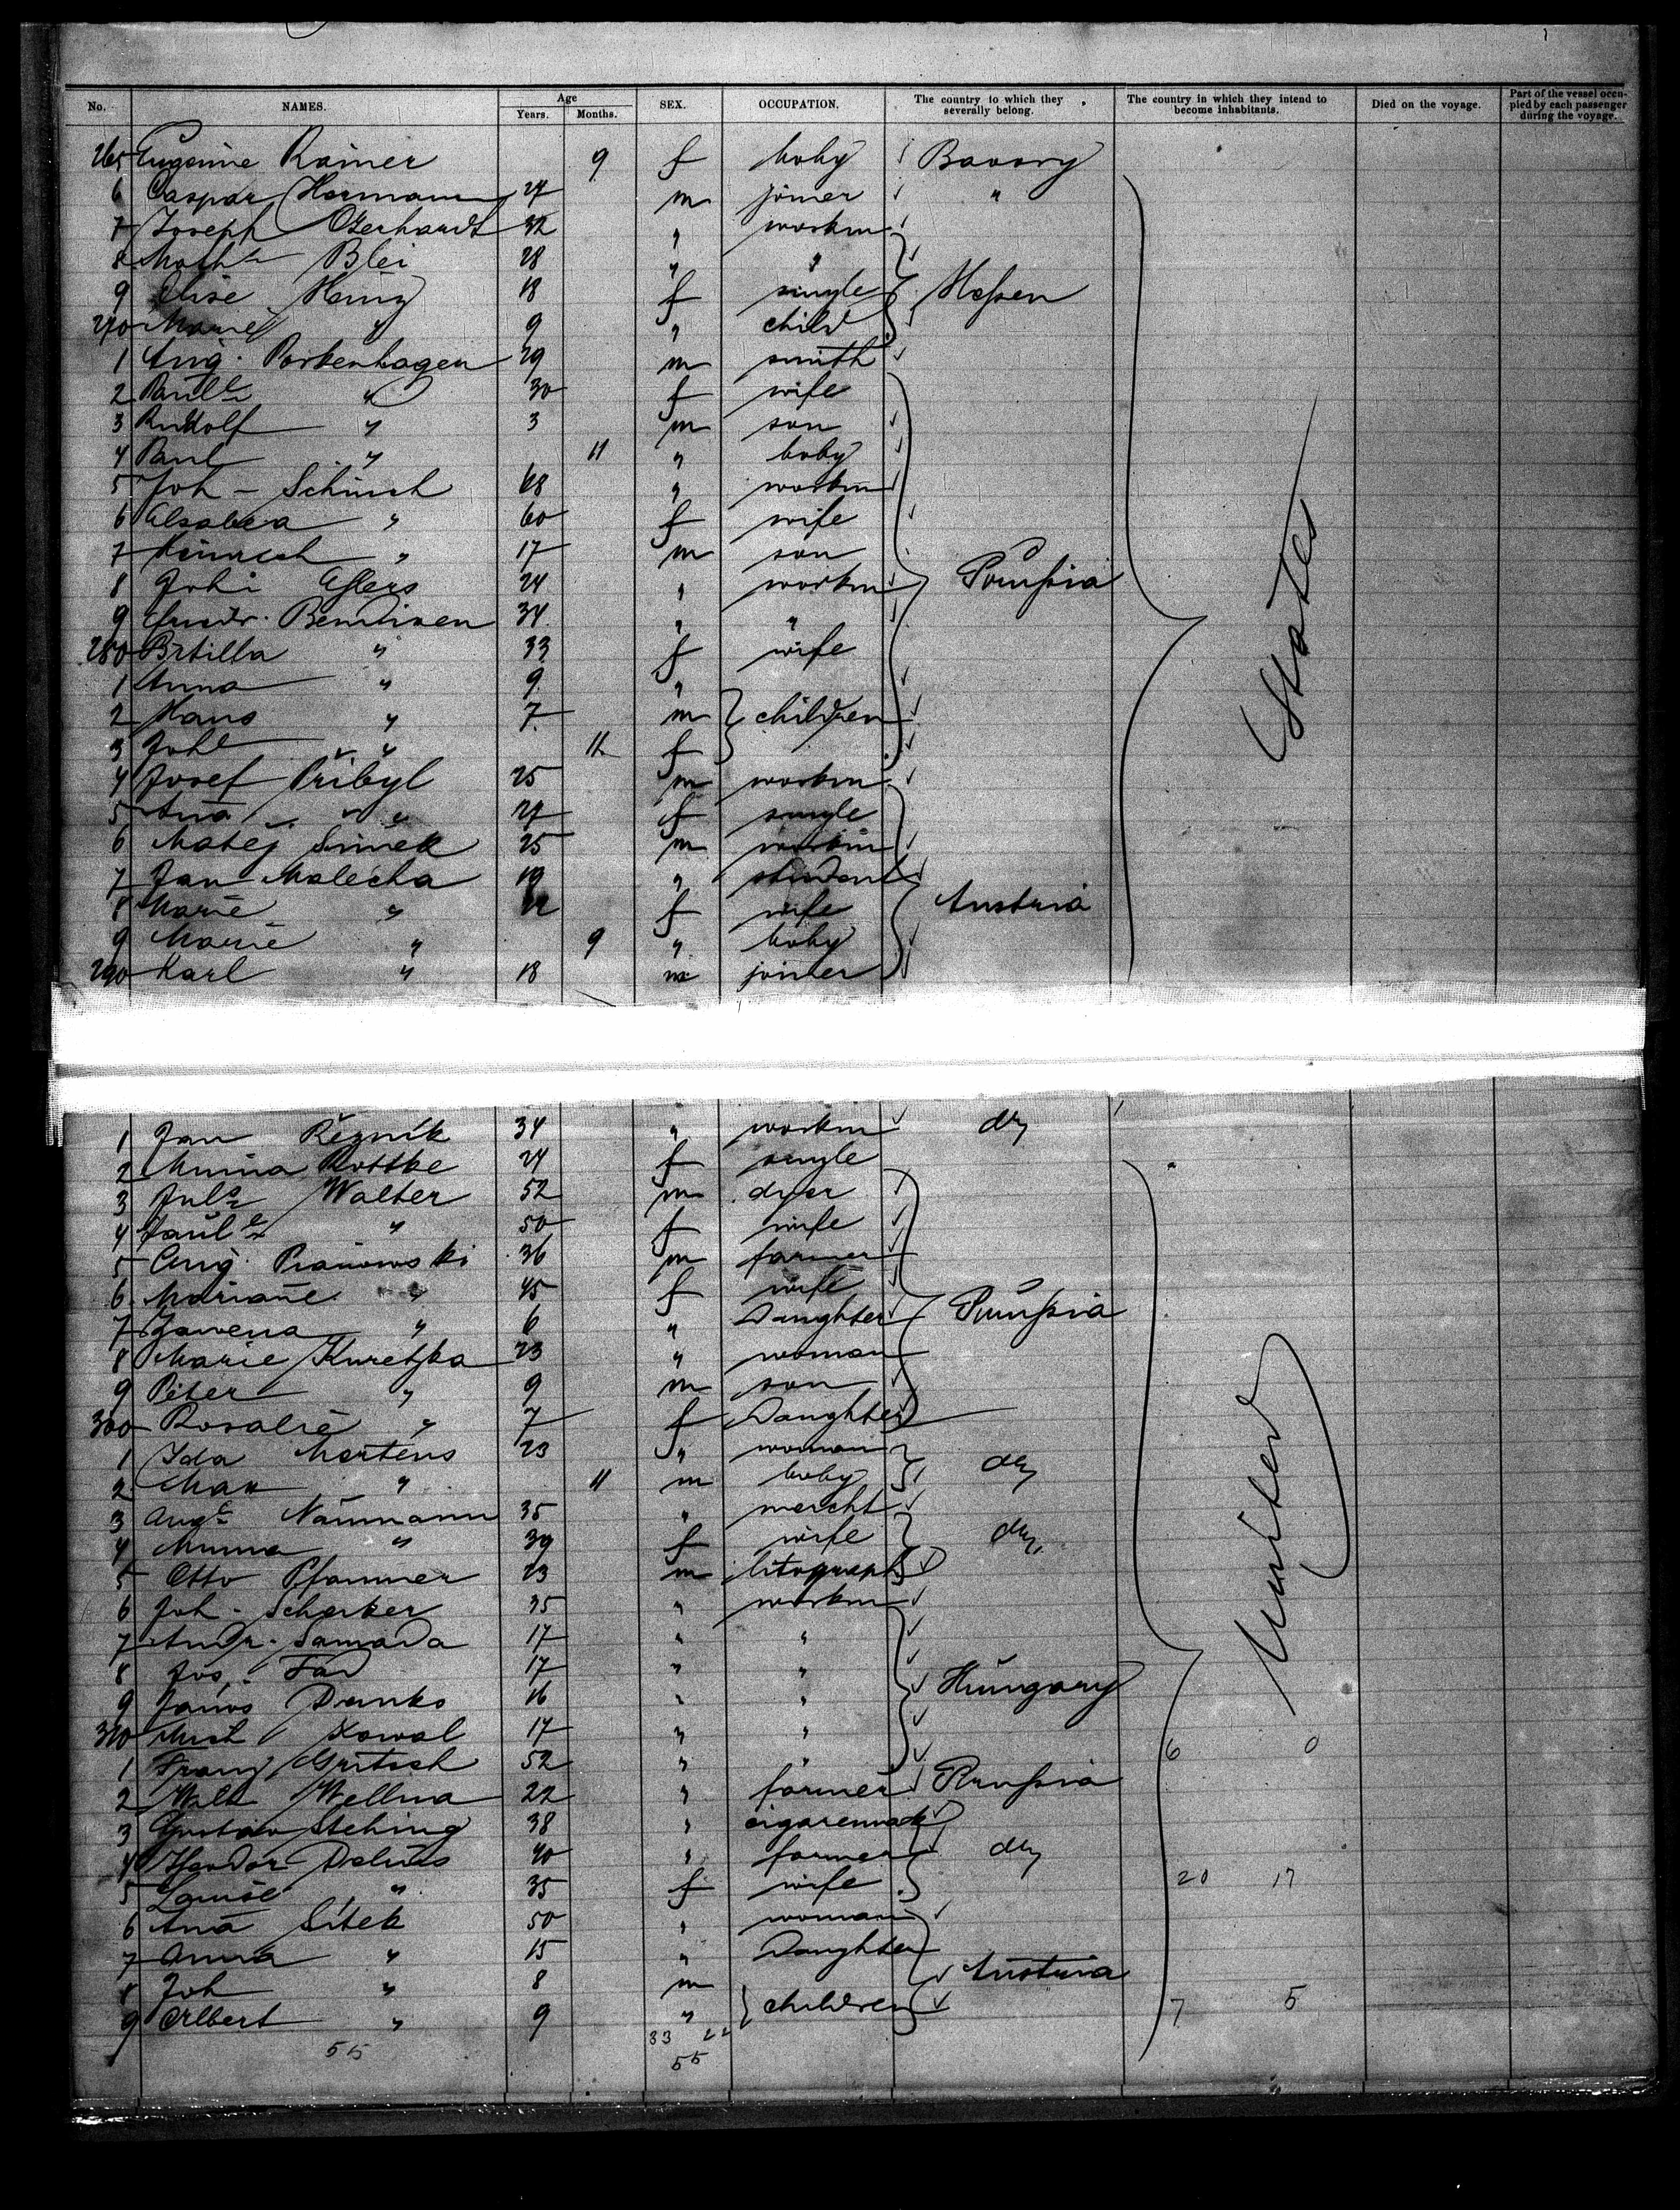 No. NAMES. Age Years. Months. SEX. OCCUPATION. The country to which they severally belong. The country in which they intend to become inhabitants. Died on the voyage. Part of the vessel occupied by each passenger during the voyage.
265 Eugenie Rainer 9 f baby Bavary
6 Caspar Hermann 27 m joiner "
7 Joseph Gerhardt 32 " workm
8 Math Blei 28 " "
9 Elise Heinz 18 f single Hessen
270 Marie " 9 " child
1 Aug. Porkenhagen 29 m smith
2 Paul " 30 f wife
3 Rudolf " 3 m son
4 Paul " 11 " baby
5 Joh - Schirsch 68 " workm
6 Elsabea " 60 f wife
7 Heinrich " 17 m son
8 Joh 24 " workm Prussia
9 Bendixen 34 " "
280 " 33 f wife
1 Anna " 9 "
2 Hans " 7 m children
3 Joh " 11 f
4 Josef Přibyl 25 m workm
5 Ana " 27 f single
6 Matěj Simek 25 m workm
7 Jan Malecha 19 " student
8 Marie " 22 f wife Austria
9 Marie " 9 " baby
290 Karl " 18 m joiner
States
1 Jan Řeznik 34 " workm do
2 Minna Rottke 24 f single
3 Jul Walter 52 m dyer
4 Paul " 50 f wife
5 Aug. Pianowski 36 m farmer
6 Mariane " 45 f wife
7 " 6 " Daughter Prussia
8 Marie Kuretzka 23 " woman
9 Peter " 9 m son
300 Rosalie " 7 f Daughter
1 Ida Martens 23 " woman do
2 Max " 11 m baby
3 Aug Naumann 35 " marcht
4 Minna " 39 f wife do
5 Otto Pfanner 23 m litograph
6 Joh - Scharker 35 " workm
7 Andr. Samada 17 " "
8 Jos. 17 " "
9 Janos Danko 16 " " Hungary
310 Mich Kowal 17 " "
1 Franz Gritsch 52 " " 6 0
2 Wilh Wellma 22 " farmer Prussia
3 Gustav Stehing 38 " cigarenmak
4 Theodor Delius 40 " farmer do
5 Louise " 35 f wife 20 17
6 Ana Sitek 50 " woman
7 Anna " 15 " Daughter
8 Joh " 8 m children Austria
9 Albert " 9 " 7 5
United
55 33 22
55